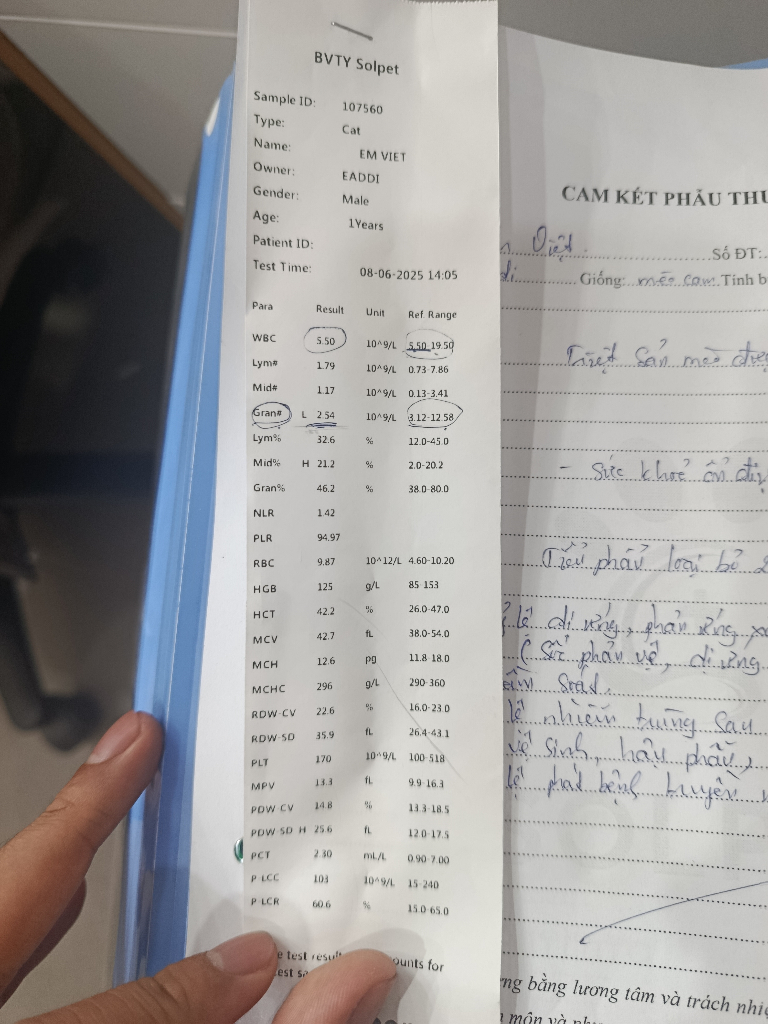 BVTY Solpet
Sample ID: 107560
Type: Cat
Name: EM VIET
Owner: EADDI
Gender: Male
Age: 1Years
Patient ID:
Test Time: 08-06-2025 14:05
Para Result Unit Ref. Range
WBC 5.50 10^9/L 5.50-19.50
Lym# 1.79 10^9/L 0.73-7.86
Mid# 1.17 10^9/L 0.13-3.41
Gran# L 2.54 10^9/L 3.12-12.58
Lym% 32.6 % 12.0-45.0
Mid% H 21.2 % 2.0-20.2
Gran% 46.2 % 38.0-80.0
NLR 1.42
PLR 94.97
RBC 9.87 10^12/L 4.60-10.20
HGB 125 g/L 85-153
HCT 42.2 % 26.0-47.0
MCV 42.7 fL 38.0-54.0
MCH 12.6 pg 11.8-18.0
MCHC 296 g/L 290-360
RDW-CV 22.6 % 16.0-23.0
RDW-SD 35.9 fL 26.4-43.1
PLT 170 10^9/L 100-518
MPV 13.3 fL 9.9-16.3
PDW-CV 14.8 % 13.3-18.5
PDW-SD H 25.6 fL 12.0-17.5
PCT 2.30 mL/L 0.90-7.00
P-LCC 103 10^9/L 15-240
P-LCR 60.6 % 15.0-65.0
e test resul ounts for
est sa
CAM KẾT PHẪU THU
Việt Số ĐT:
di Giống: mèo cam Tính b
Triệt sản mèo đực
- Sức khoẻ ổn địn
Tiểu phẫu loại bỏ 2
lệ dị ứng, phản ứng
(Sốc phản vệ, dị ứng
lệ nhiễm trùng sau
vệ sinh, hậu phẫu,
lệ phát bệnh truyền
ng bằng lương tâm và trách nhiệ
môn và